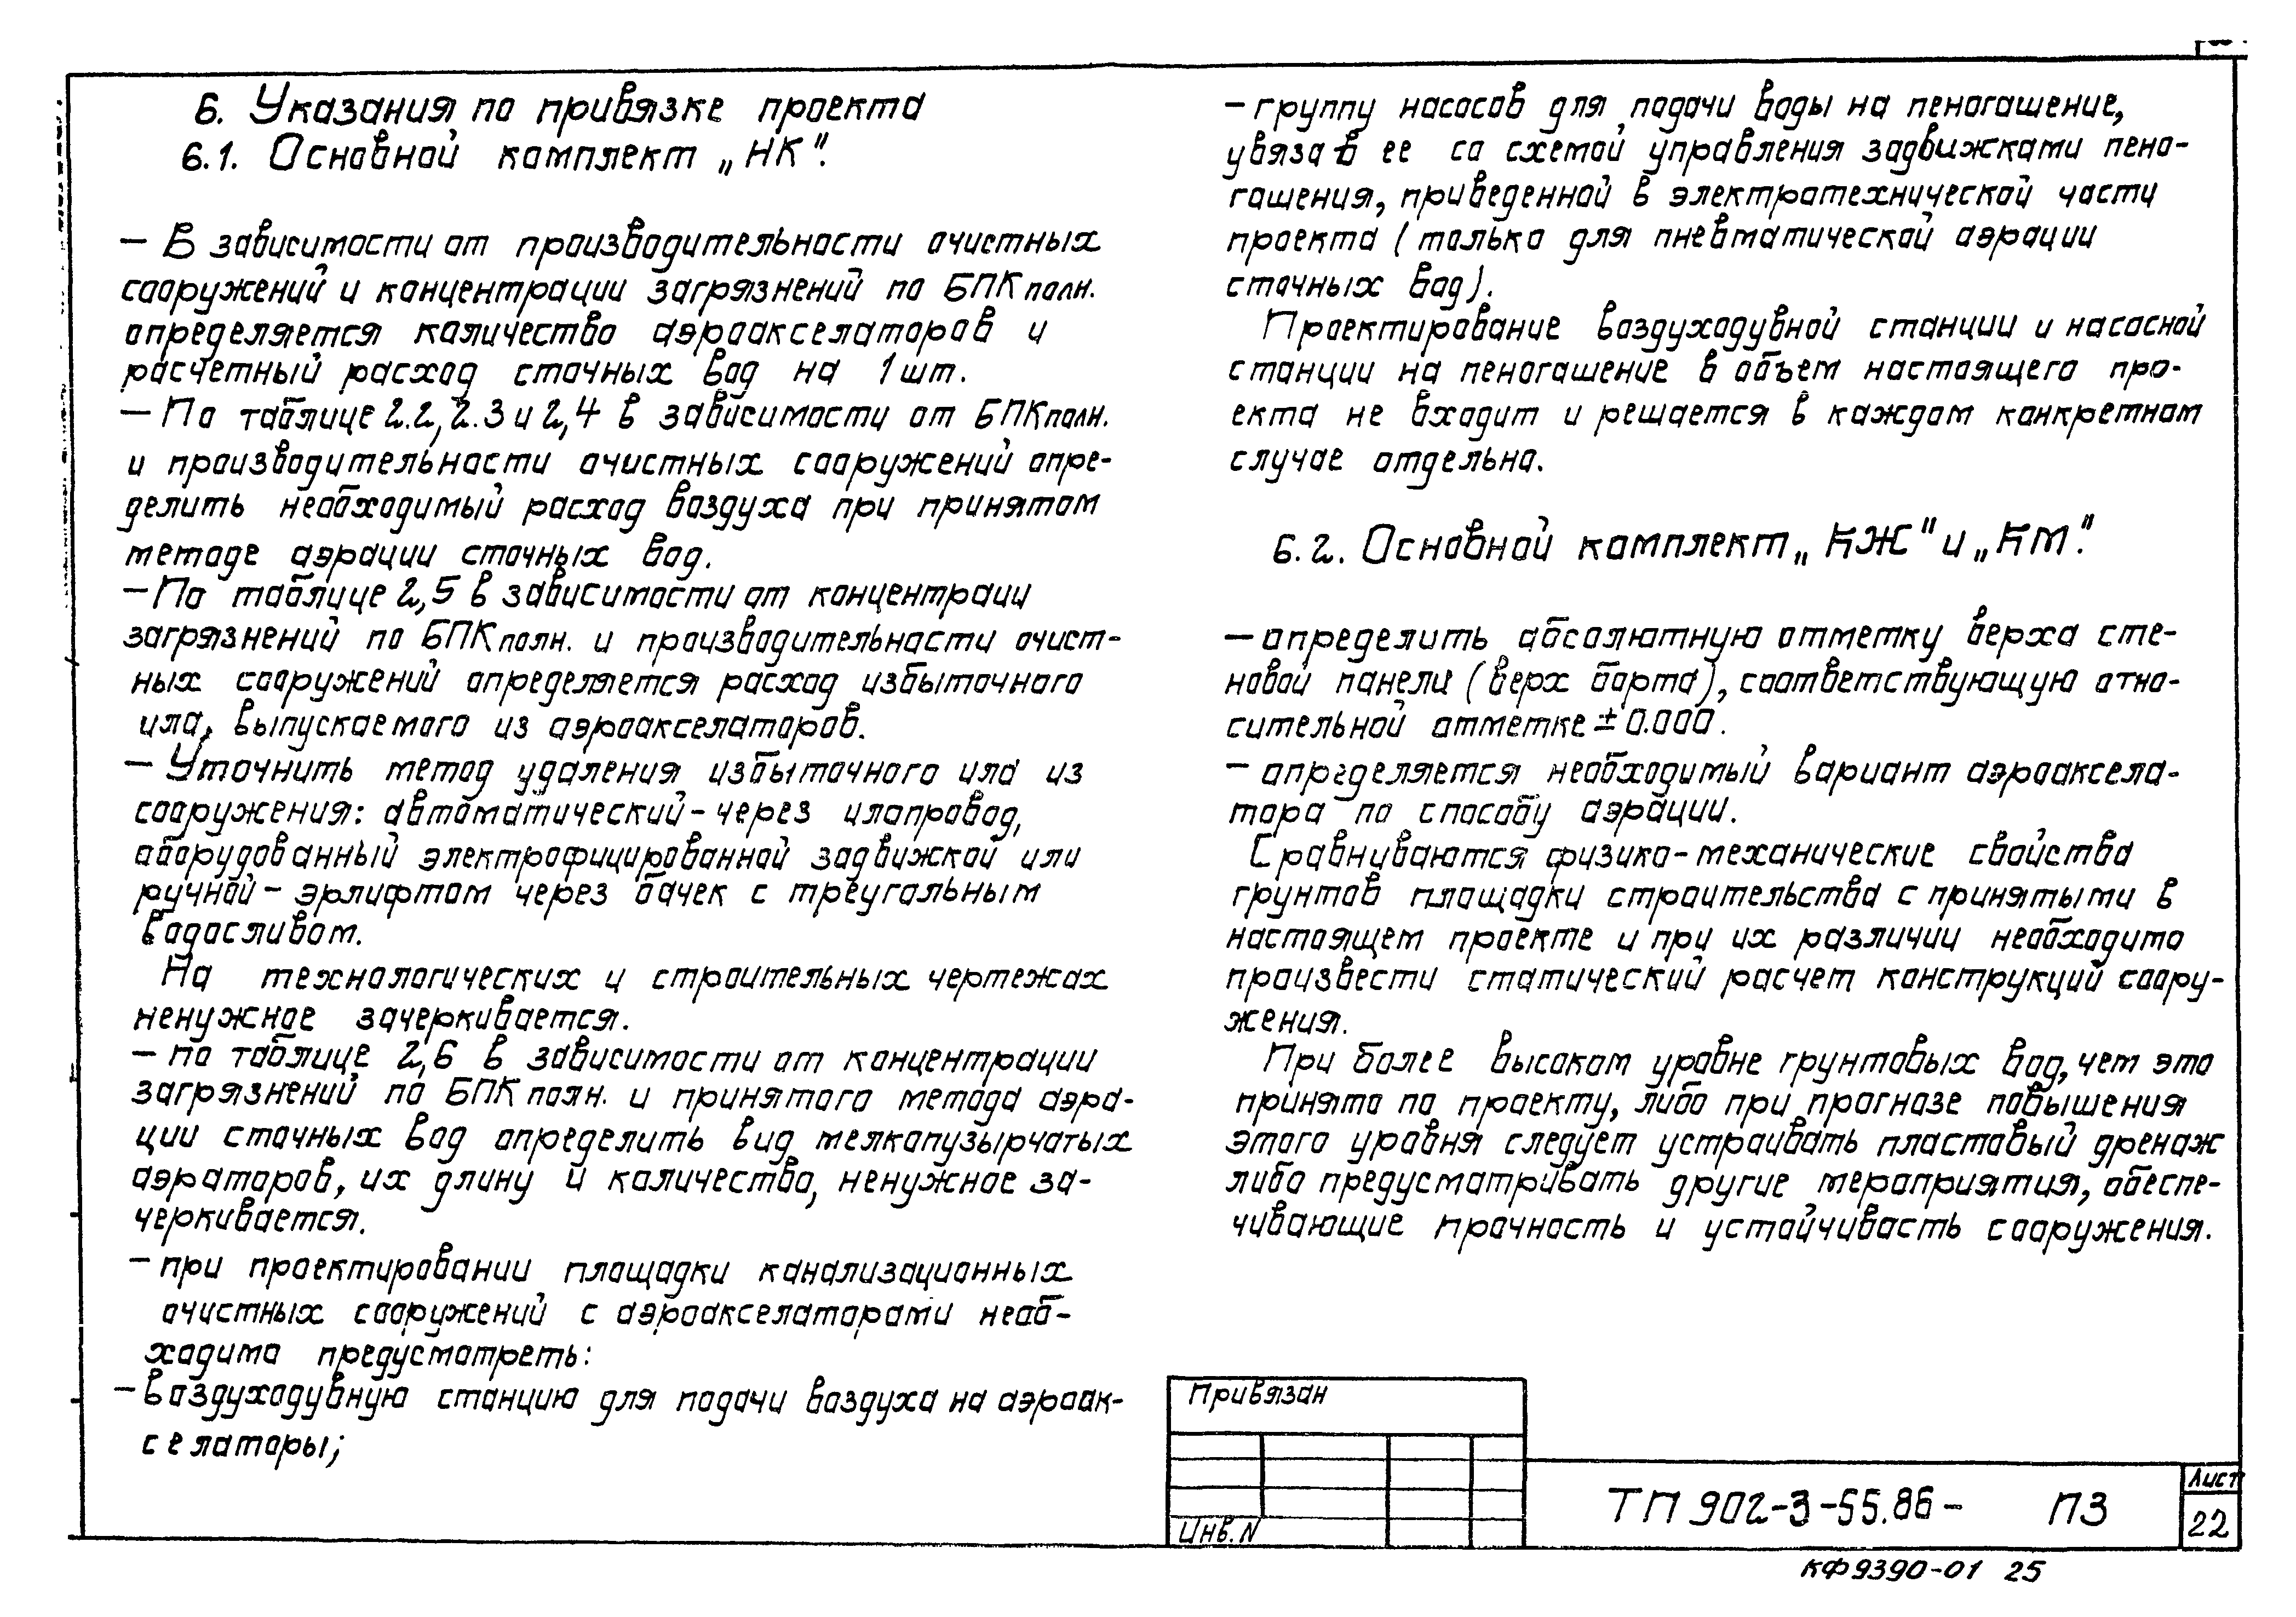 6. Указания по привязке проекта
6.1. Основной комплект „НК".
— В зависимости от производительности очистных
сооружений и концентрации загрязнений по БПК полн.
определяется количество аэроакселаторов и
расчетный расход сточных вод на 1 шт.
— По таблице 2.2, 2.3 и 2,4 в зависимости от БПК полн.
и производительности очистных сооружений опре-
делить необходимый расход воздуха при принятом
методе аэрации сточных вод.
— По таблице 2,5 в зависимости от концентраци
загрязнений по БПК полн. и производительности очист-
ных сооружений определяется расход избыточного
ила, выпускаемого из аэроакселаторов.
— Уточнить метод удаления избыточного ила из
сооружения: автоматический - через илопровод,
оборудованный электрофицированной задвижкой или
ручной - эрлифтом через бачек с треугольным
водосливом.
На технологических и строительных чертежах
ненужное зачеркивается.
— по таблице 2,6 в зависимости от концентрации
загрязнений по БПК полн. и принятого метода аэра-
ции сточных вод определить вид мелкопузырчатых
аэраторов, их длину и количество, ненужное за-
черкивается.
— при проектировании площадки канализационных
очистных сооружений с аэроакселаторами необ-
ходимо предусмотреть:
— воздуходувную станцию для подачи воздуха на аэроак-
селаторы;
— группу насосов для подачи воды на пеногашение,
увязав ее со схемой управления задвижками пено-
гашения, приведенной в электротехнической части
проекта (только для пневматической аэрации
сточных вод).
Проектирование воздуходувной станции и насосной
станции на пеногашение в объем настоящего про-
екта не входит и решается в каждом конкретном
случае отдельно.
6.2. Основной комплект „КЖ" и „КМ".
— определить абсолютную отметку верха сте-
новой панели (верх борта), соответствующую отно-
сительной отметке ± 0.000.
— определяется необходимый вариант аэроаксела-
тора по способу аэрации.
Сравниваются физико-механические свойства
грунтов площадки строительства с принятыми в
настоящем проекте и при их различии необходимо
произвести статический расчет конструкций соору-
жения.
При более высоком уровне грунтовых вод, чем это
принято по проекту, либо при прогнозе повышения
этого уровня следует устраивать пластовый дренаж
либо предусматривать другие мероприятия, обеспе-
чивающие прочность и устойчивость сооружения.
Привязан
Инв. N
ТП 902-3-55.86- ПЗ
Лист
22
КФ 9390-01 25